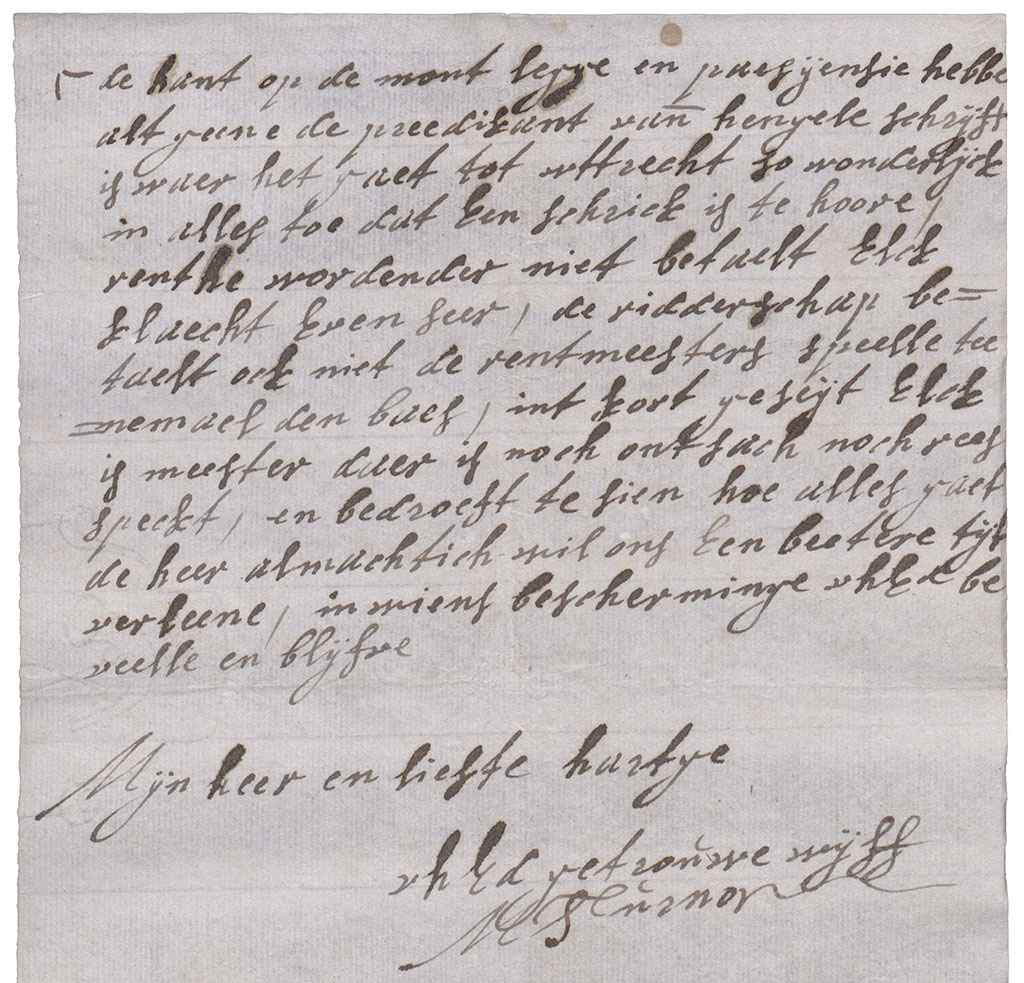 de hant op de mont legge en paesyensie hebbe
alt geene de preedikant van hengele schrijft
is waer het gaet tot uttrecht so wonderlijck
in alles toe dat Een schrick is te hoore,
renthe wordender niet betaelt Elck
klaecht Even seer, de ridderschap be=
taelt ock niet de rentmeesters speelle tee
=nemael den baes, int kort geseijt Elck
is meester daer is noch ontsach noch rees
speckt, en bedroeft te sien hoe alles gaet
de heer almachtich wil ons Een beetere tijt
verleene, in wiens bescherminge uhEd be
veelle en blijfve
Mijn heer en liefste hartge
uhEd getrouwe wijff
M